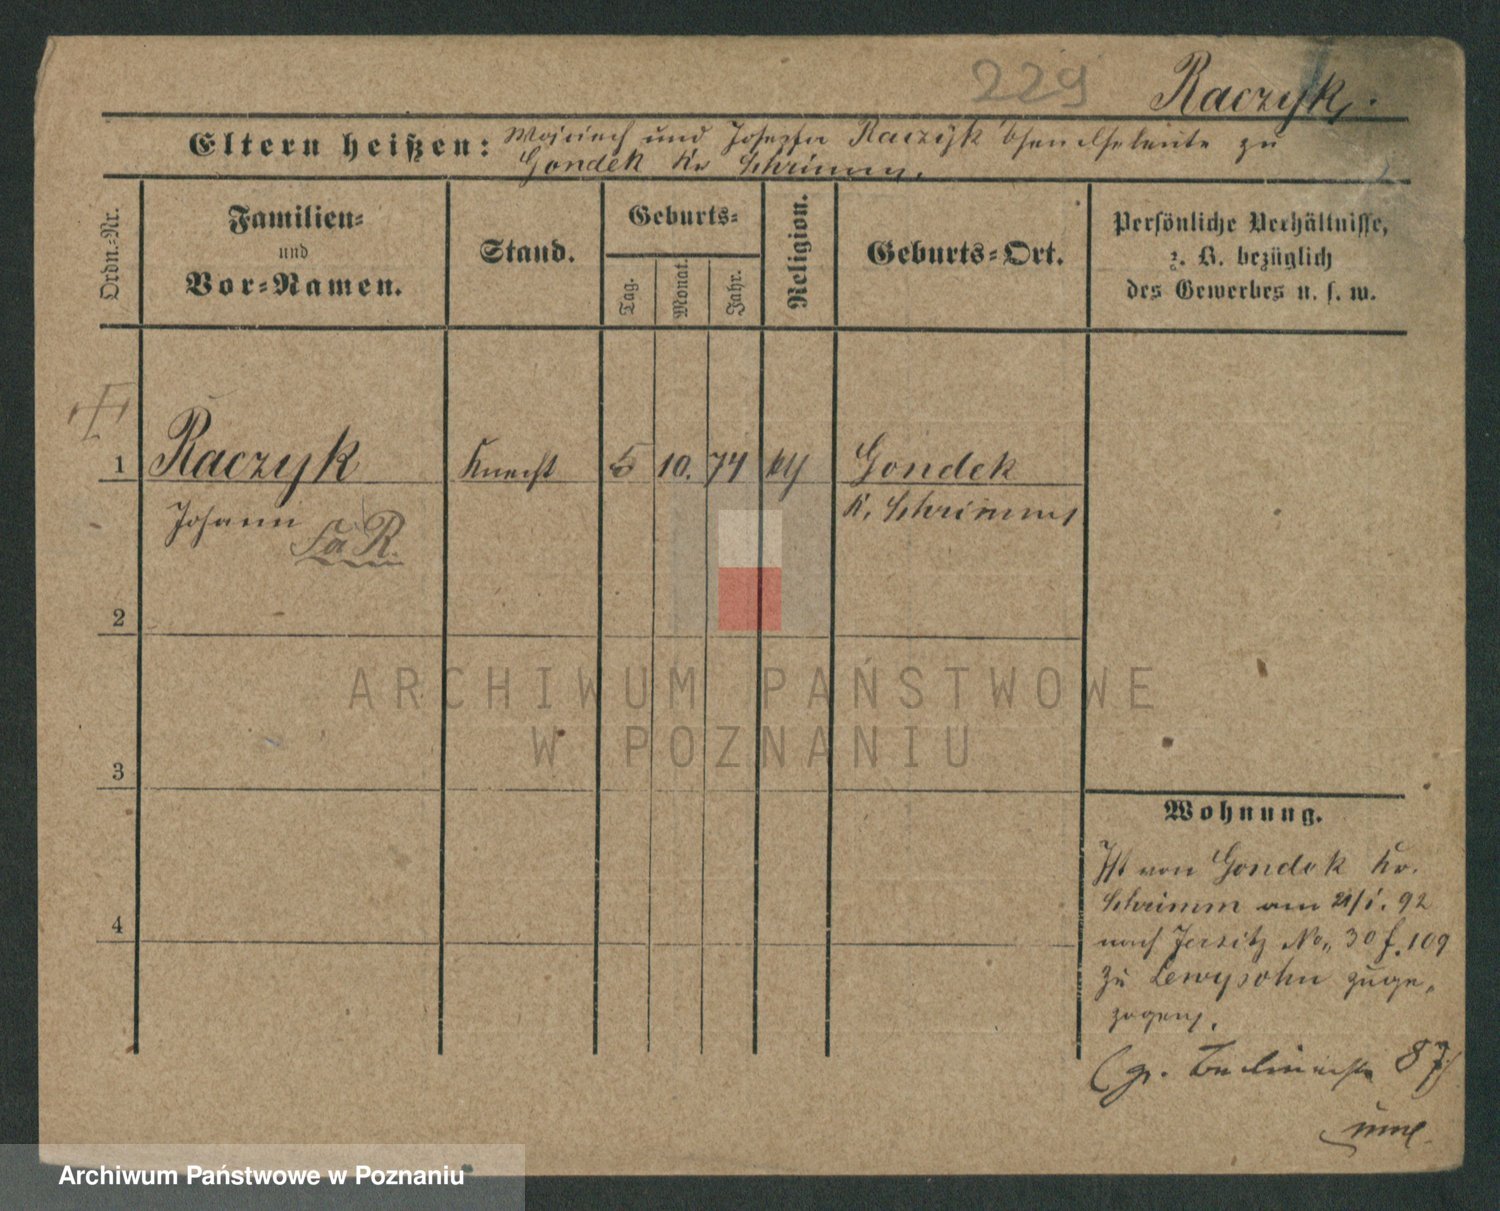 229
Raczyk.
Eltern heißen: Wojciech und Josepha Raczyk Eheleute zu
Gondek Kr Schrimm.
Ordn.=Nr.
Familien=
und
Vor=Namen.
Stand.
Geburts=
Tag.
Monat.
Jahr.
Religion.
Geburts=Ort.
Persönliche Verhältnisse,
z. B. bezüglich
des Gewerbes u. s. w.
1 Raczyk Knecht 5 10. 74 Gondek
Johann K. Schrimm
2
3
4
Wohnung.
Ist von Gondek Kr.
Schrimm am 21/1. 92
nach Jersitz No. 30 f. 109
zu Lewysohn zuge-
zogen.
(gr. Berlinerstr 87)
ARCHIWUM PAŃSTWOWE
W POZNANIU
Archiwum Państwowe w Poznaniu